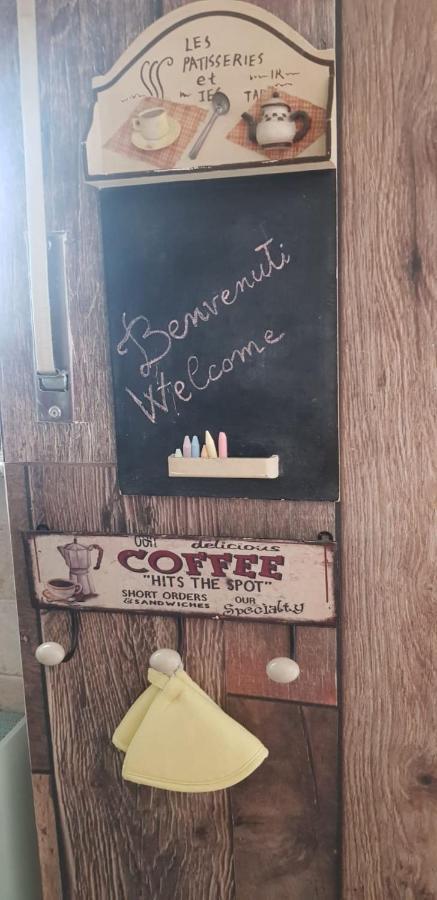 LES
PATISSERIES
et
Benvenuti
Welcome
OUR delicious
COFFEE
"HITS THE SPOT"
SHORT ORDERS
& SANDWICHES
OUR
Specialty